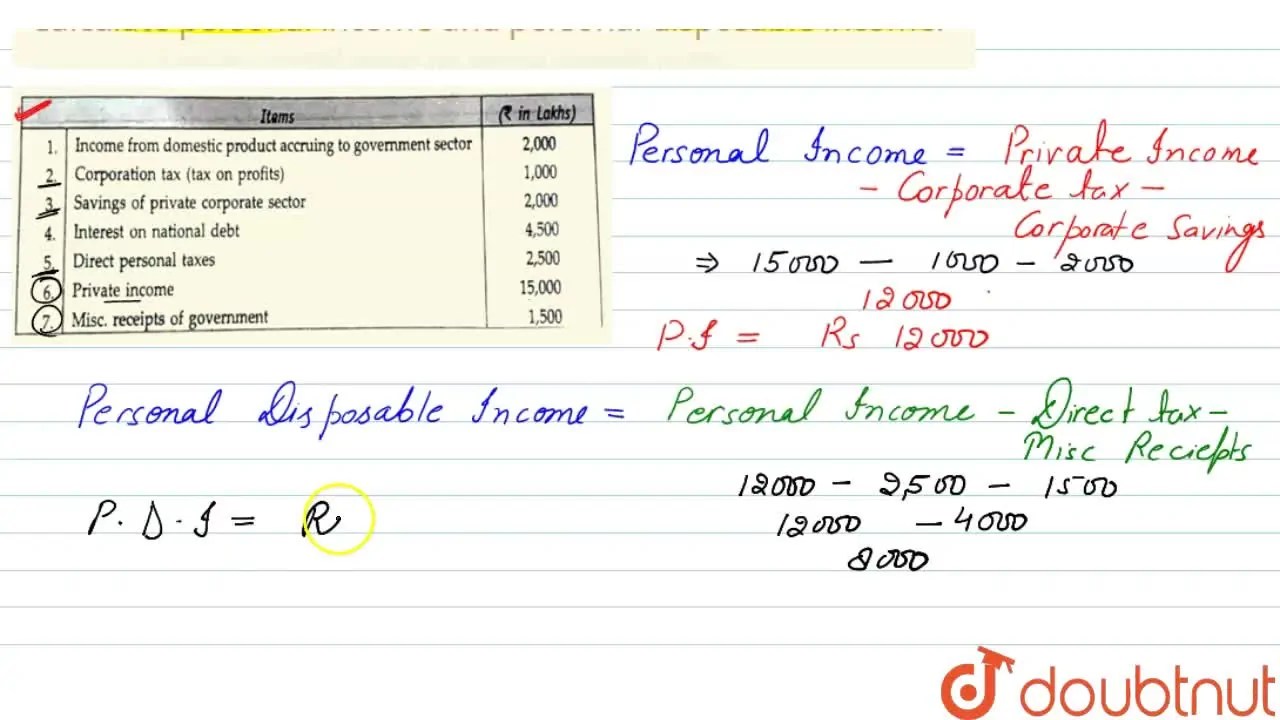 calculate personal income and personal disposable income.
Items (₹ in Lakhs)
1. Income from domestic product accruing to government sector 2,000
2. Corporation tax (tax on profits) 1,000
3. Savings of private corporate sector 2,000
4. Interest on national debt 4,500
5. Direct personal taxes 2,500
6. Private income 15,000
7. Misc. receipts of government 1,500
Personal Income = Private Income
- Corporate tax -
Corporate Savings
⇒ 15000 - 1000 - 2000
12000
P.I = Rs 12000
Personal Disposable Income = Personal Income - Direct tax -
Misc Reciepts
12000 - 2,500 - 1500
12000 - 4000
8000
P.D.I = R
doubtnut